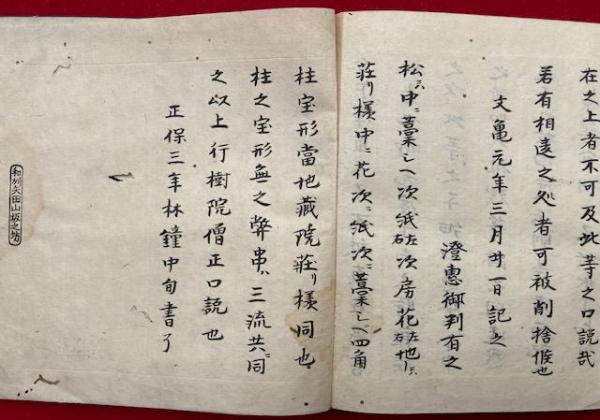 在之上者不可及此等之口説哉
若有相違之処者可被削捨候也
文亀元年三月廿一日記之
澄恵御判有之
松ニハ中ニ藁シヘ次紙左右次房花左右地ニハ
荘リ様中ニ花次ニ紙次ニ藁シヘ四角
柱宝形當地蔵院荘リ様同也
柱之宝形無之弊串ハ三流共同
之以上行樹院僧正口説也
正保三年林鐘中旬書了
和州矢田山坂之坊